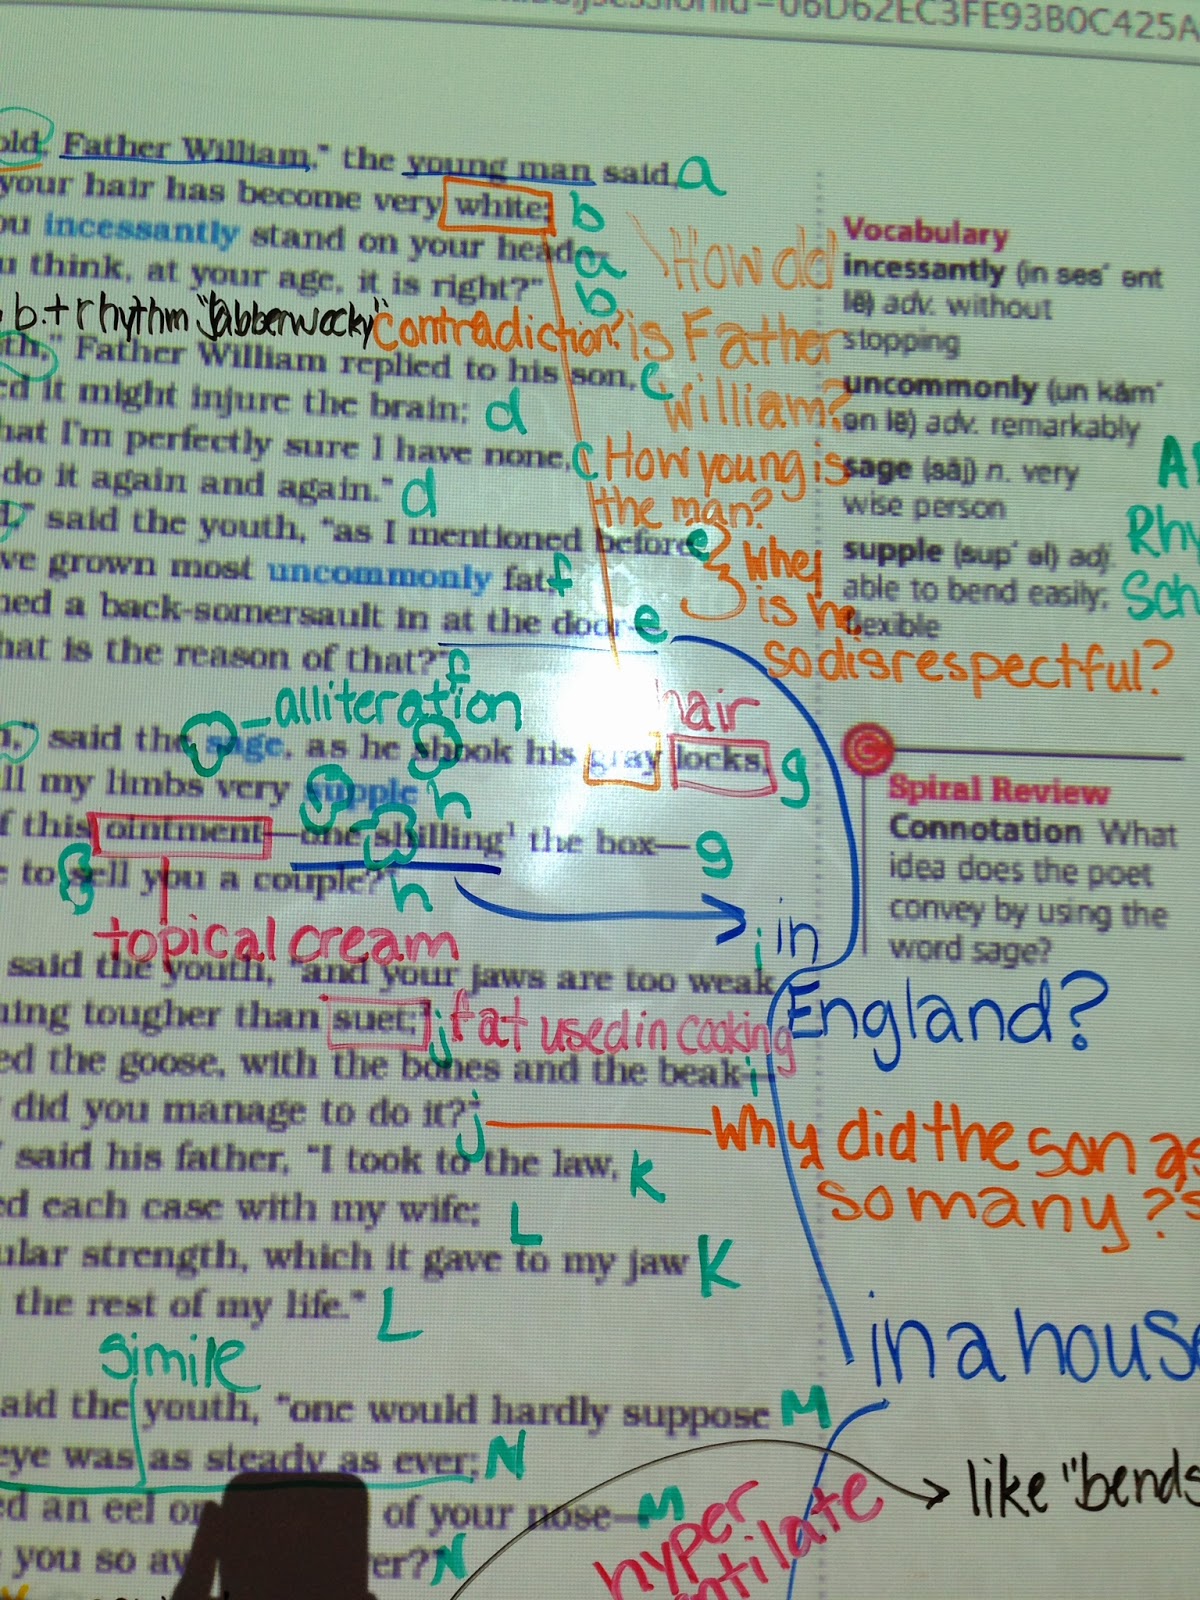 06D62EC3FE93B0C425A
old, Father William," the young man said, a
your hair has become very white; b
incessantly stand on your head a
think, at your age, it is right?" b
b. + rhythm "Jabberwocky" contradiction?
How old
is Father
William?
" Father William replied to his son, c
it might injure the brain; d
that I'm perfectly sure I have none, c
do it again and again." d
How young is
the man?
" said the youth, "as I mentioned before e
grown most uncommonly fat, f
a back-somersault in at the door— e
what is the reason of that?" f
Why
is he
so disrespectful?
alliteration
hair
" said the sage, as he shook his gray locks, g
my limbs very supple h
this ointment—one shilling¹ the box— g
to sell you a couple?" h
topical cream
in
England?
said the youth, "and your jaws are too weak i
tougher than suet; j fat used in cooking
the goose, with the bones and the beak— i
did you manage to do it?" j
Why did the son as
so many?
said his father, "I took to the law, K
each case with my wife; L
strength, which it gave to my jaw K
the rest of my life." L
in a house
simile
said the youth, "one would hardly suppose M
eye was as steady as ever; N
an eel of your nose— M
you so N
hyper
like "bends
Vocabulary
incessantly (in ses′ ənt
lē) adv. without
stopping
uncommonly (un käm′
ən lē) adv. remarkably
sage (sāj) n. very
wise person
supple (sup′ əl) adj.
able to bend easily;
flexible
Rhy
Sch
Spiral Review
Connotation What
idea does the poet
convey by using the
word sage?